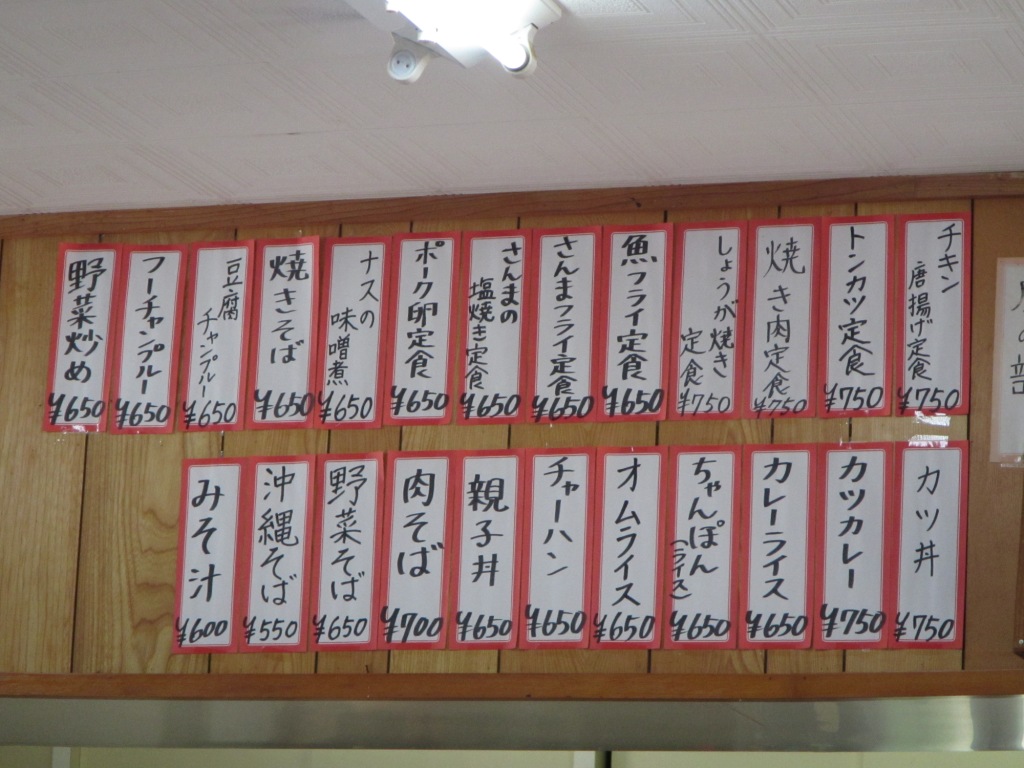 チキン
唐揚げ定食
¥750
トンカツ定食
¥750
焼き肉定食
¥750
しょうが焼き
定食
¥750
魚フライ定食
¥650
さんまフライ定食
¥650
さんまの
塩焼き定食
¥650
ポーク卵定食
¥650
ナスの
味噌煮
¥650
焼きそば
¥650
豆腐
チャンプルー
¥650
フーチャンプルー
¥650
野菜炒め
¥650
カツ丼
¥750
カツカレー
¥750
カレーライス
¥650
ちゃんぽん
(ライス)
¥650
オムライス
¥650
チャーハン
¥650
親子丼
¥650
肉そば
¥700
野菜そば
¥650
沖縄そば
¥550
みそ汁
¥600